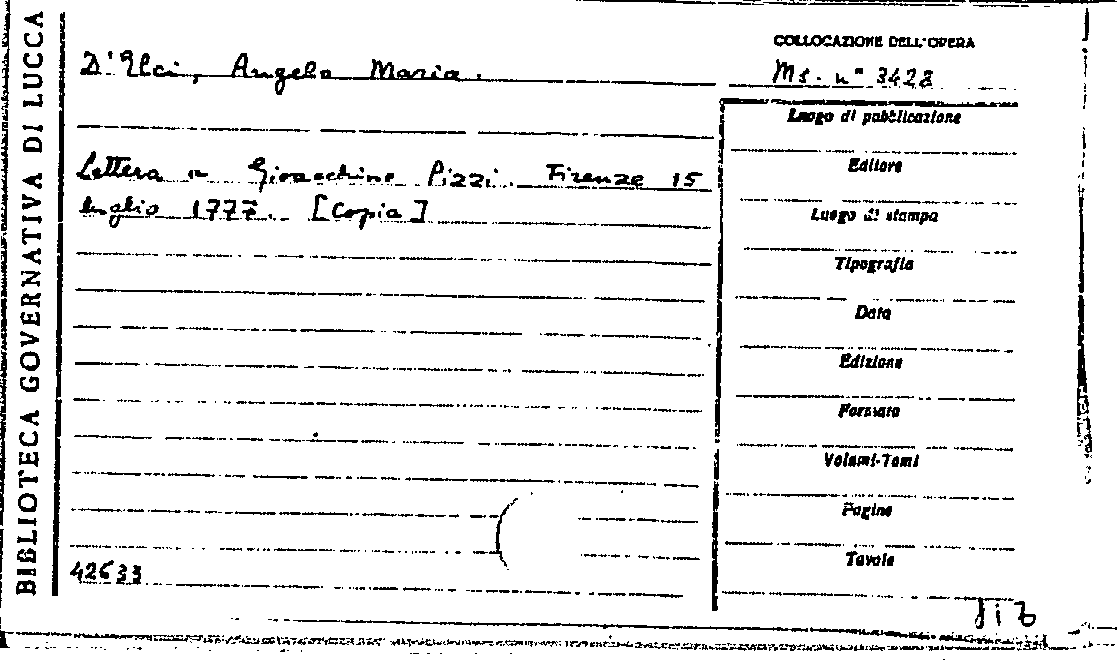 BIBLIOTECA GOVERNATIVA DI LUCCA
COLLOCAZIONE DELL'OPERA
D'Elci, Angelo Maria.
Ms. n° 3428
Luogo di pubblicazione
Editore
Lettera a Gioacchino Pizzi. Firenze 15
luglio 1777. [Copia]
Luogo di stampa
Tipografia
Data
Edizione
Formato
Volumi-Tomi
Pagine
Tavole
42633